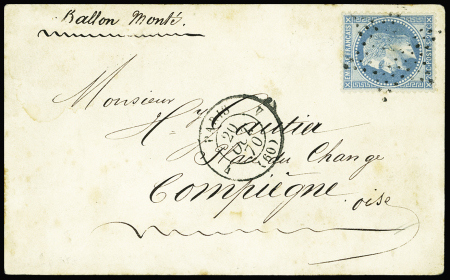 Ballon Monté.
EMPIRE FRANÇAIS
Monsieur
H. Gautier
Pl. du Change
Compiègne
oise
PARIS
20
OCT
70
(60)